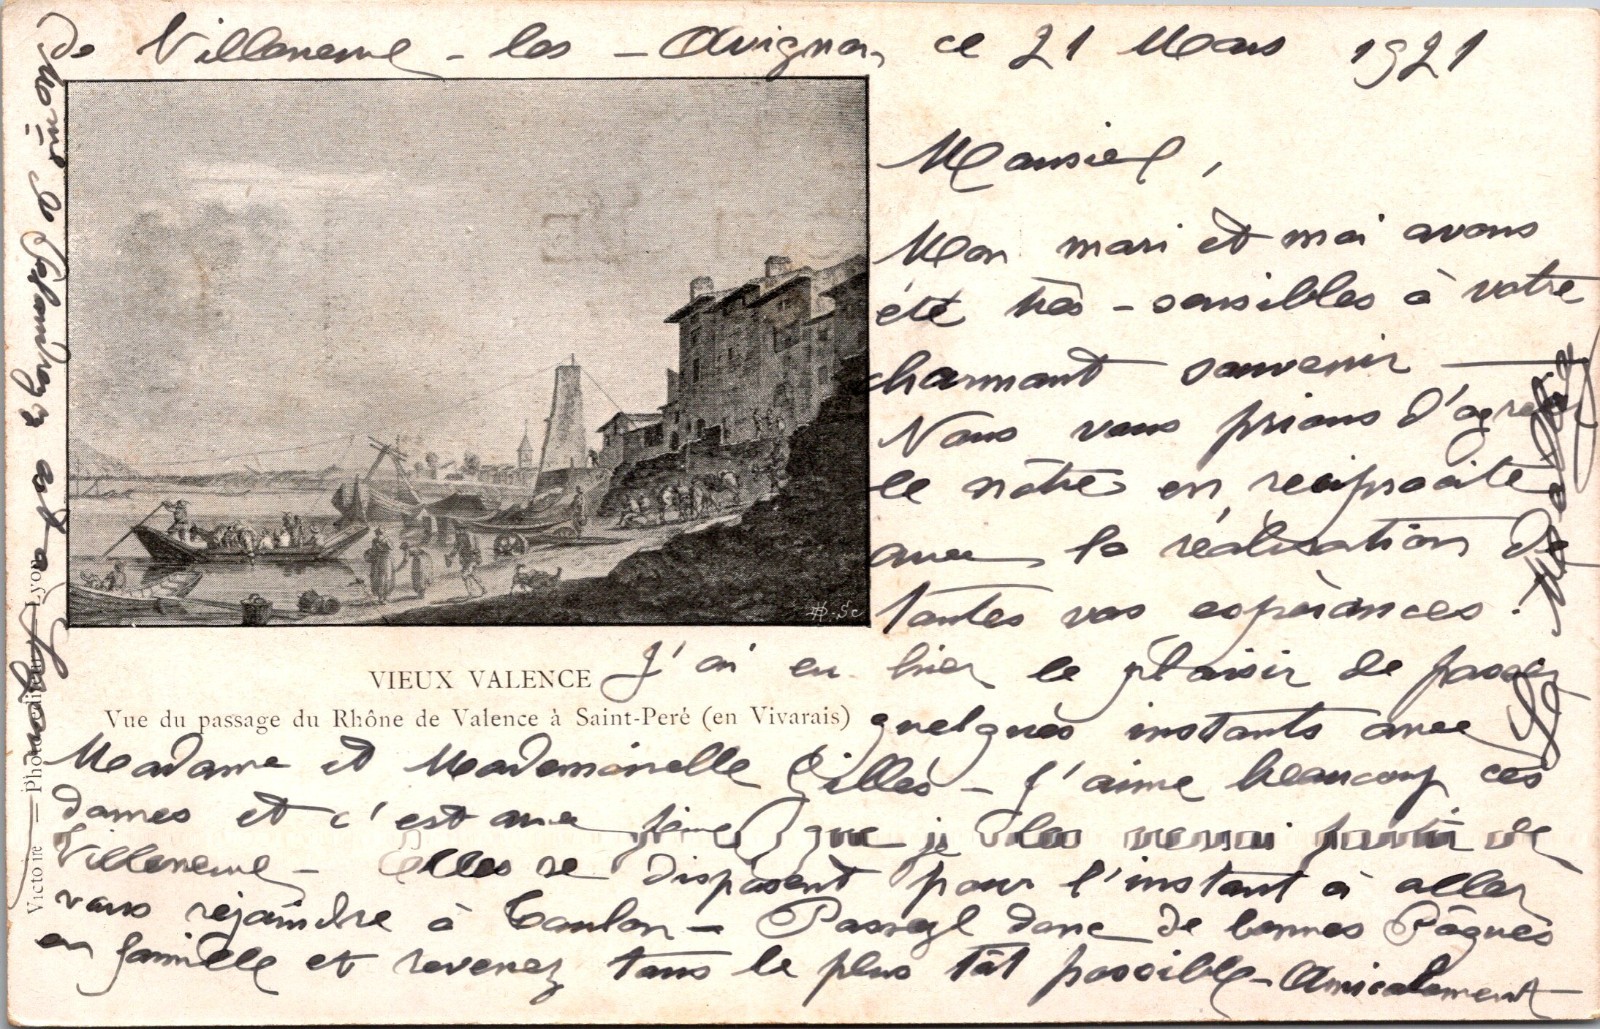 de Villeneuve - les - Avignon, ce 21 Mars 1921
Monsieur,
Mon mari et moi avons
été très - sensibles à votre
charmant souvenir —
Nous vous prions d'agréer
le nôtre en réciprocité
avec la réalisation de
toutes vos espérances.
J'ai eu hier le plaisir de passer
quelques instants avec
Madame et Mademoiselle Gilles - J'aime beaucoup ces
dames et c'est avec peine que je les verrai partir de
Villeneuve - Elles se disposent pour l'instant à aller
vous rejoindre à Toulon - Passez donc de bonnes Pâques
en famille et revenez tous le plus tôt possible - Amicalement
VIEUX VALENCE
Vue du passage du Rhône de Valence à Saint-Peré (en Vivarais)
Victoire — Photo-éditeur Lyon